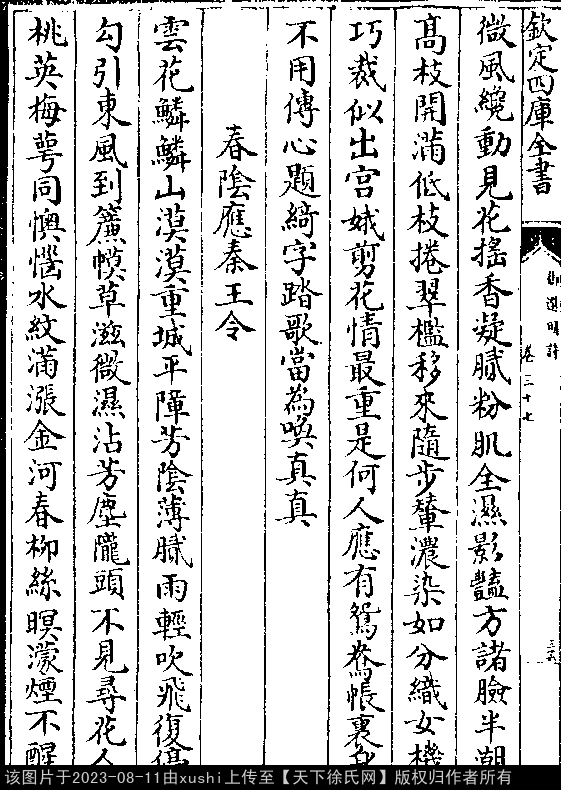 欽定四庫全書
御選明詩
卷三十七
微風纔動見花摇香凝膩粉肌全濕影豔方諸臉半潮
髙枝開滿低枝捲翠檻移來隨步輦濃染如分織女機
巧裁似出宫娥剪花情最重是何人應有鴛鴦帳裏
不用傳心題綺字踏歌當為喚真真
春陰應秦王令
雲花鱗鱗山漠漠重城平障芳陰薄膩雨輕吹飛復
勾引東風到簾幙草滋微濕沾芳塵隴頭不見尋花人
桃英梅萼同懊惱水紋滿漲金河春柳絲暝濛煙不醒
该图片于2023-08-11由xushi上传至【天下徐氏网】版权归作者所有